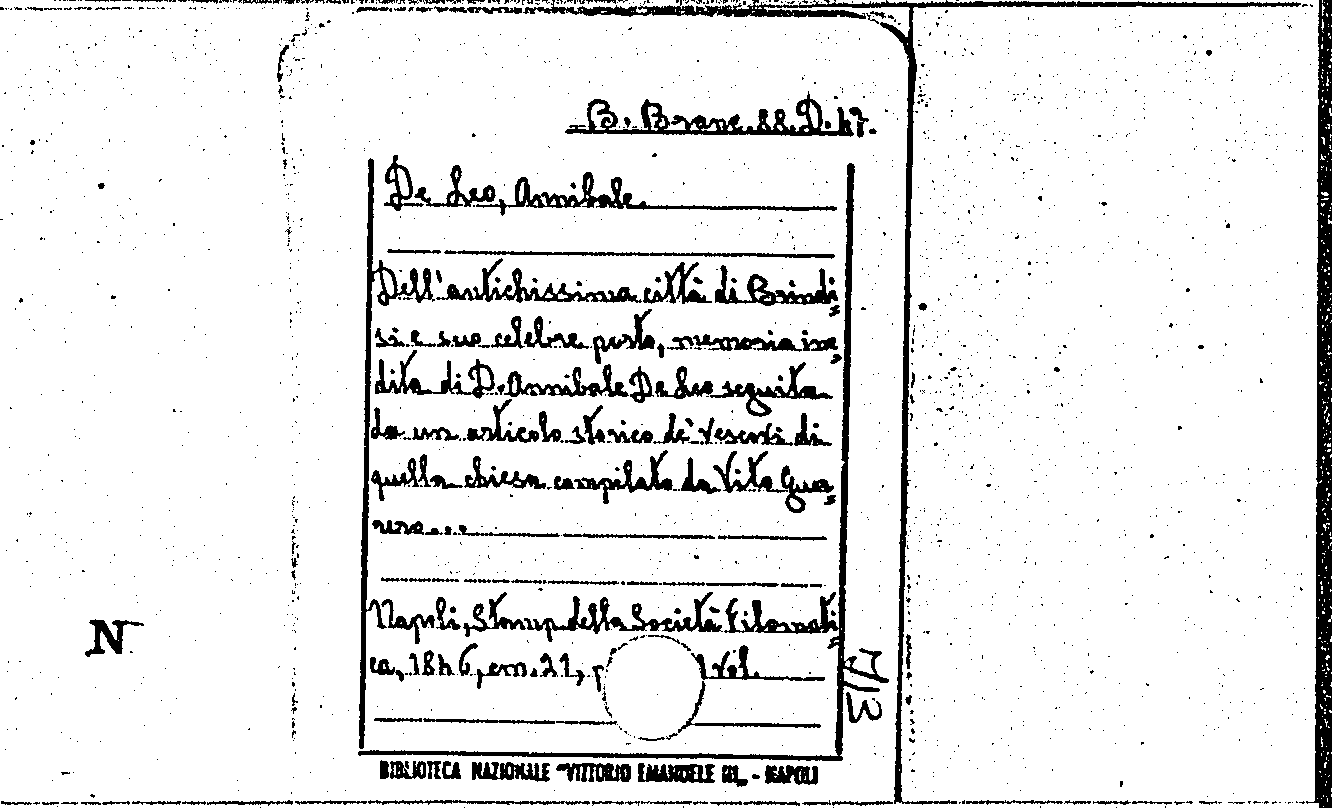 B. Branc. 88. D. 47.
De Leo, Annibale.
Dell'antichissima città di Brindi=
si e suo celebre porto, memoria ine=
dita di D. Annibale De Leo seguita
da un articolo storico de' Vescovi di
quella chiesa compilato da Vito Gue=
rera...
Napoli, Stamp. della Società Filomati=
ca, 1846, cm. 21, p 1 vol.
N
BIBLIOTECA NAZIONALE "VITTORIO EMANUELE III" - NAPOLI